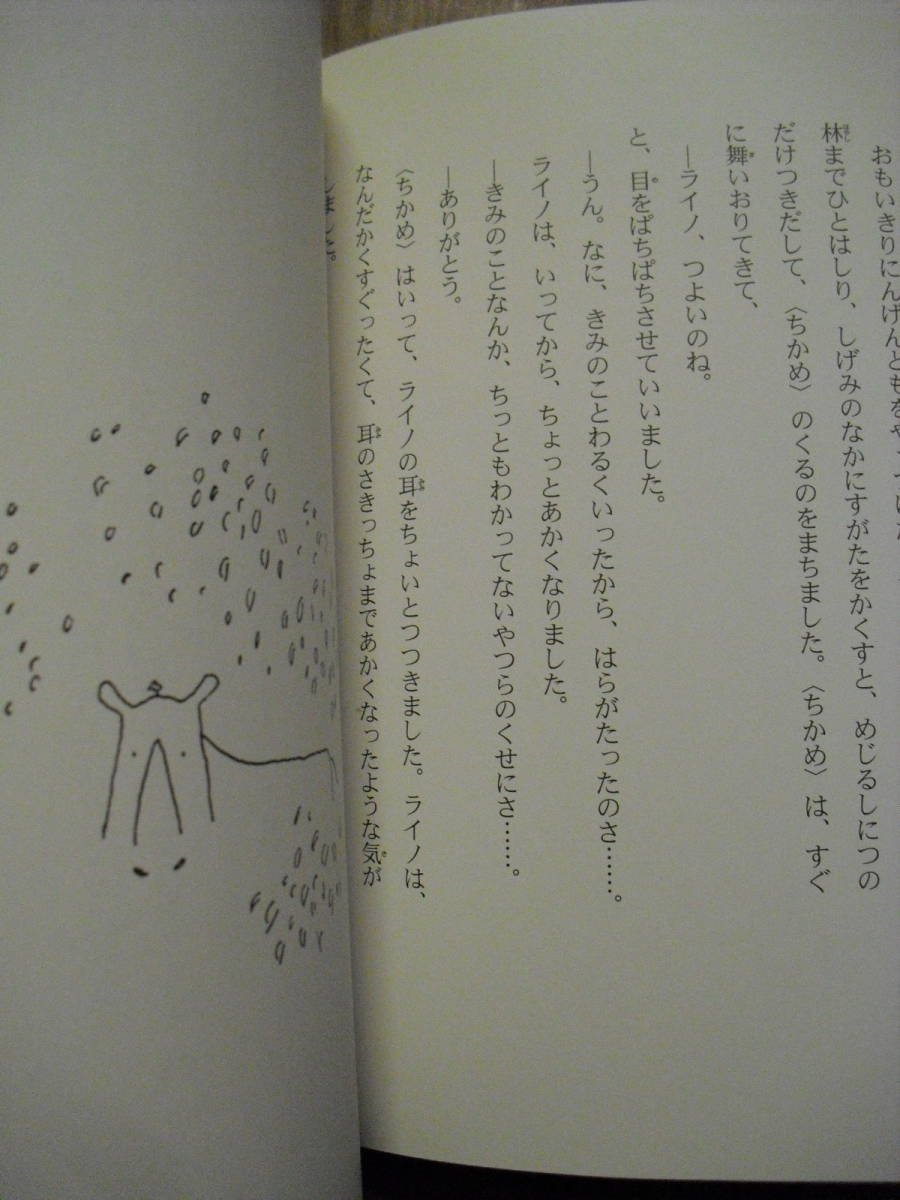 おもいきりにんげんどもをやっつけ
林までひとはしり、しげみのなかにすがたをかくすと、めじるしにつの
だけつきだして、〈ちかめ〉のくるのをまちました。〈ちかめ〉は、すぐ
に舞いおりてきて、
―ライノ、つよいのね。
と、目をぱちぱちさせていいました。
―うん。なに、きみのことわるくいったから、はらがたったのさ……。
ライノは、いってから、ちょっとあかくなりました。
―きみのことなんか、ちっともわかってないやつらのくせにさ……。
―ありがとう。
〈ちかめ〉はいって、ライノの耳をちょいとつつきました。ライノは、
なんだかくすぐったくて、耳のさきっちょまであかくなったような気が
しました。